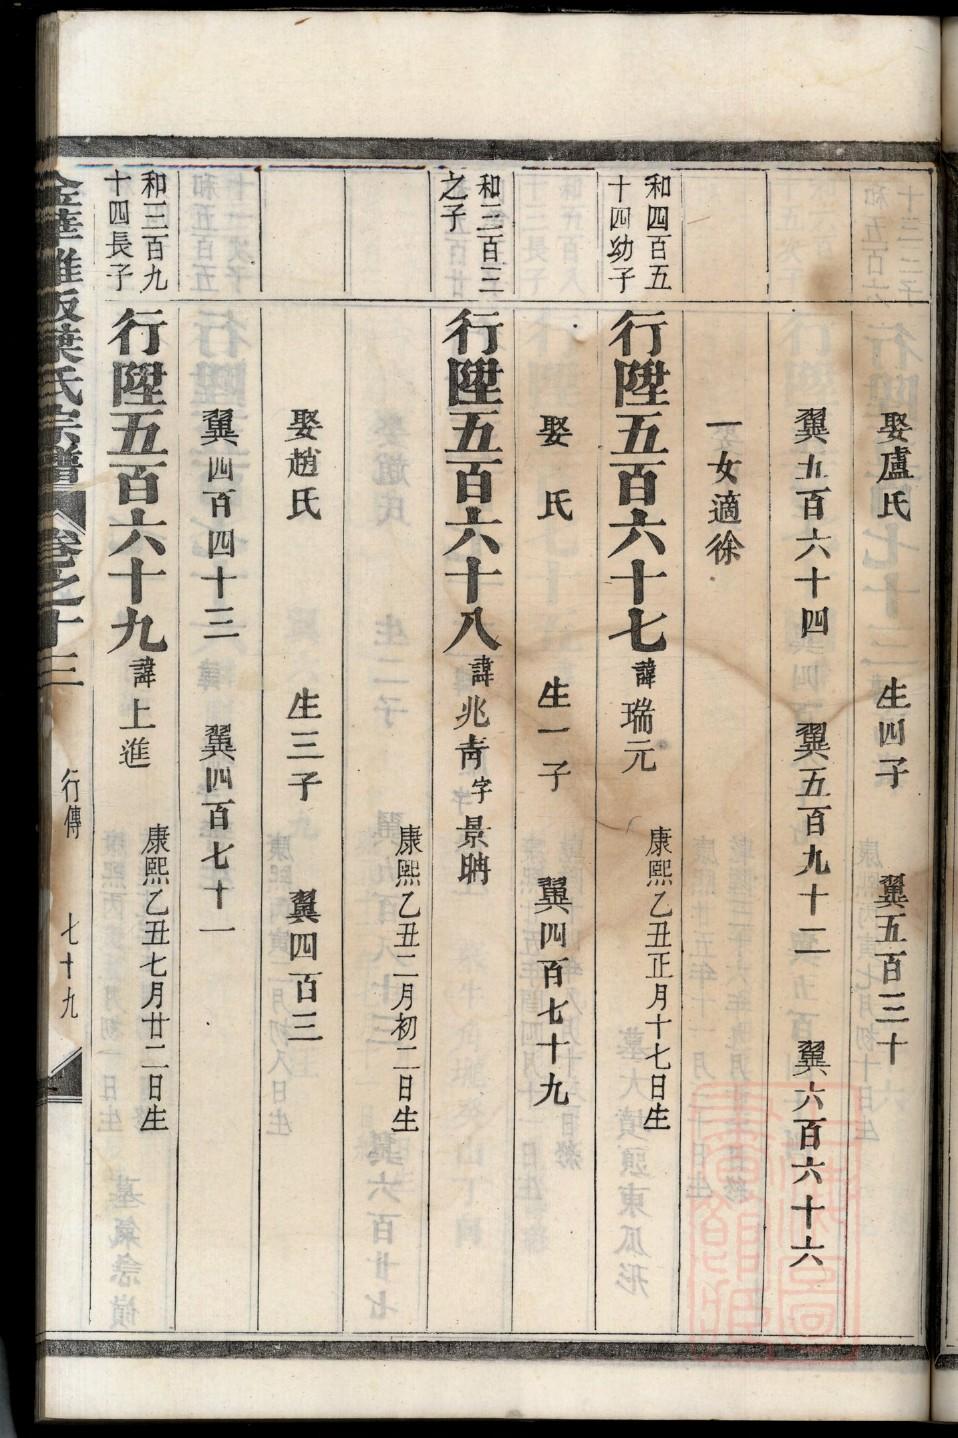 娶盧氏　生四子　翼五百三十
翼五百六十四　翼五百九十二　翼六百六十六
一女適徐
和四百五
十四幼子
行陞五百六十七　諱瑞元　康熙乙丑正月十七日生
娶　氏　生一子　翼四百七十九
和三百三
之子
行陞五百六十八　諱兆青字景聘　康熙乙丑二月初二日生
娶趙氏　生三子　翼四百三
翼四百四十三　翼四百七十一
和三百九
十四長子
行陞五百六十九　諱上進　康熙乙丑七月廿二日生
葉氏宗譜　卷之十三　行傳　七十九